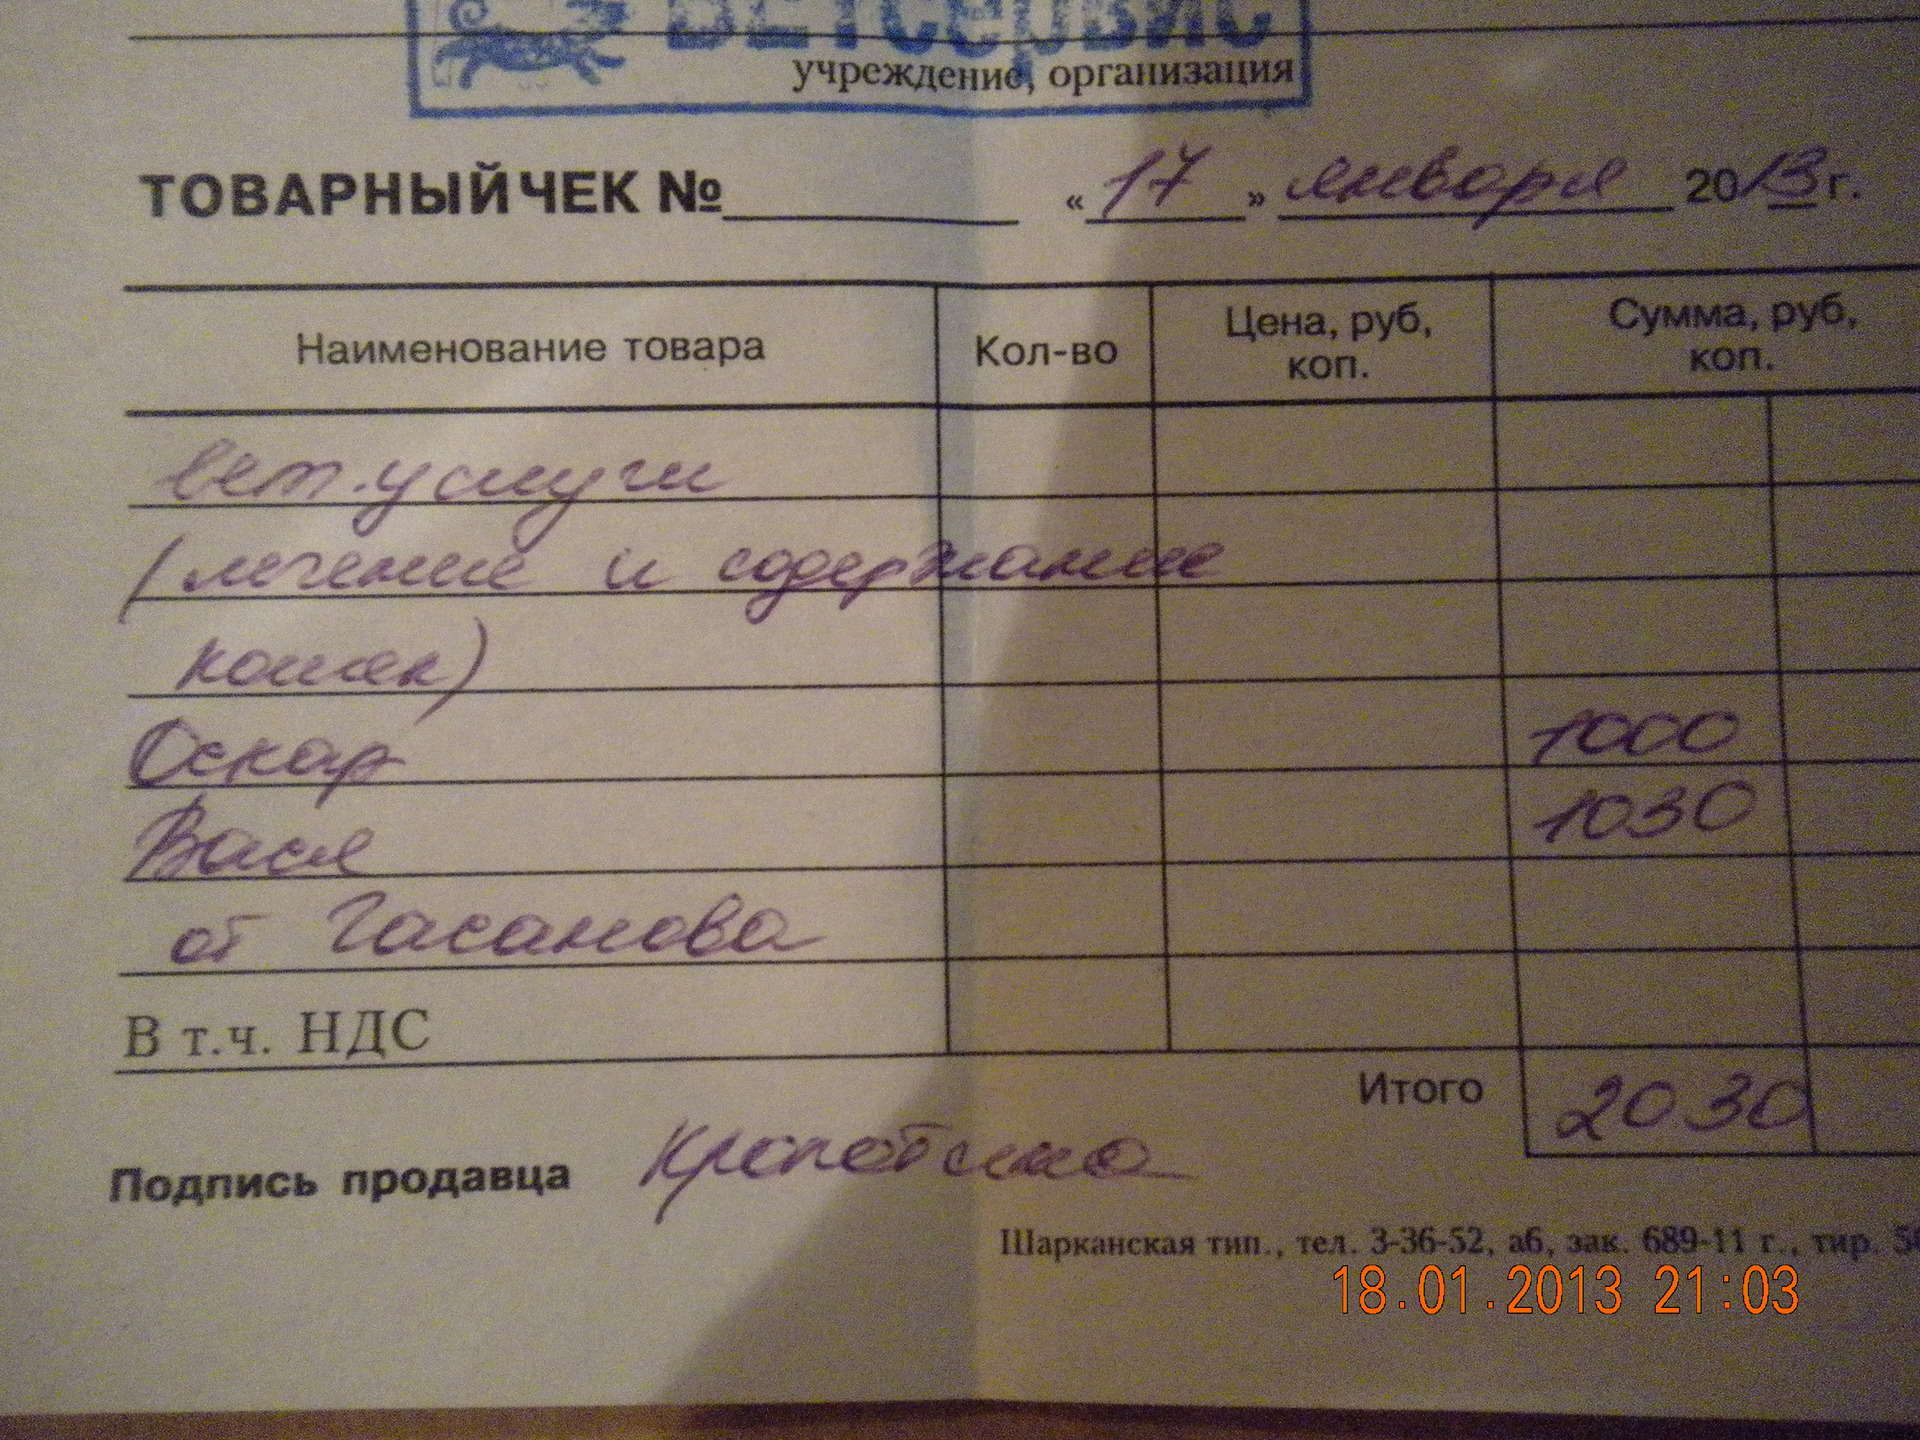 ВЕТсервис
учреждение, организация
ТОВАРНЫЙ ЧЕК № «17» января 2013 г.
Наименование товара Кол-во Цена, руб, коп. Сумма, руб, коп.
вет.услуги
(лечение и содержание
кошек)
Оскар 1000
Вася 1030
от Гасанова
В т.ч. НДС
Итого 2030
Подпись продавца Кропоткина
Шарканская тип., тел. 3-36-52, а6, зак. 689-11 г., тир.
18.01.2013 21:03